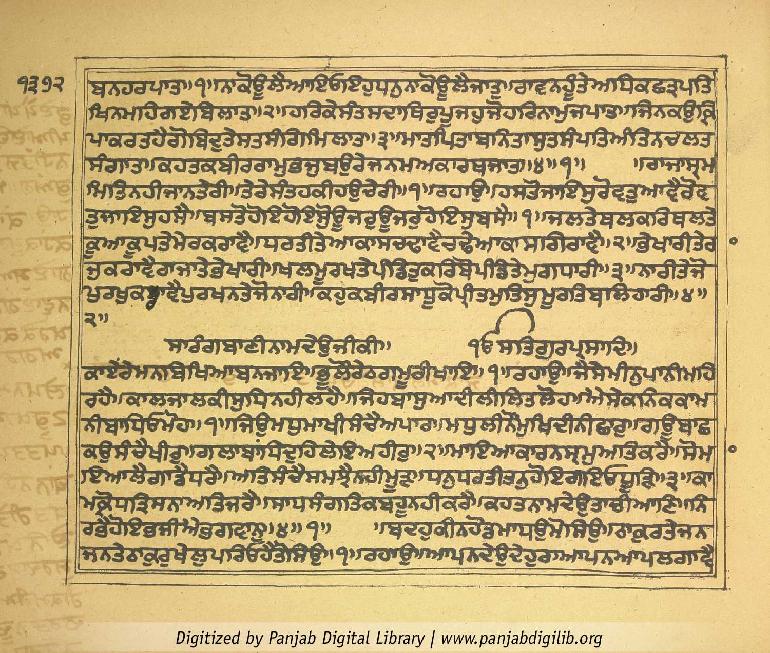 ੧੩੭੨
ਬਨਹਰਪਾਤਾ॥੧॥ਨਾਕੋਊਲੈਆਇਓਇਹੁਧਨੁਨਾਕੋਊਲੈਜਾਤੁ॥ਰਾਵਨਹੂੰਤੇਅਧਿਕਛਤ੍ਰਪਤਿ
ਖਿਨਮਾਹਿਗਏਬਿਲਾਤ॥੨॥ਹਰਿਕੇਸੰਤਸਦਾਥਿਰੁਪੂਜਹੁਜੋਹਰਿਨਾਮੁਜਪਾਤ॥ਜਿਨਕਉਕ੍ਰਿ
ਪਾਕਰਤਹੈਗੋਬਿਦੁਤੇਸਤਸੰਗਿਮਿਲਾਤ॥੩॥ਮਾਤਪਿਤਾਬਨਿਤਾਸੁਤਸੰਪਤਿਅੰਤਿਨਚਲਤ
ਸੰਗਾਤ॥ਕਹਤਕਬੀਰਰਾਮਭਜੁਬਉਰੇਜਨਮਅਕਾਰਥਜਾਤ॥੪॥੧॥ ॥ਰਾਜਾਸ੍ਰਮ
ਮਿਤਿਨਹੀਜਾਨਤੇਰੀ॥ਤੇਰੇਸੰਤਨਕੀਹਉਚੇਰੀ॥੧॥ਰਹਾਉ॥ਹਸਤੋਜਾਇਸੁਰੋਵਤੁਆਵੈਰੋਵ
ਤੁਜਾਇਸੁਹਸੈ॥ਬਸਤੋਹੋਇਹੋਇਸੋਊਜਰੁਊਜਰੁਹੋਇਸੁਬਸੈ॥੧॥ਜਲਤੇਥਲਕਰਿਥਲਤੇ
ਕੂਆਕੂਪਤੇਮੇਰਕਰਾਵੈ॥ਧਰਤੀਤੇਆਕਾਸਚਢਾਵੈਚਢੇਆਕਾਸਗਿਰਾਵੈ॥੨॥ਭੇਖਾਰੀਤੇਰ
ਜੁਕਰਾਵੈਰਾਜਾਤੇਭੇਖਾਰੀ॥ਖਲਮੂਰਖਤੇਪੰਡਿਤੁਕਰਿਬੋਪੰਡਿਤਤੇਮੁਗਧਾਰੀ॥੩॥ਨਾਰੀਤੇਜੋ
ਪੁਰਖੁਕਰਾਵੈਪੁਰਖਨਤੇਜੋਨਾਰੀ॥ਕਹੁਕਬੀਰਸਾਧੂਕੋਪ੍ਰੀਤਮੁਤਿਸੁਮੂਰਤਿਬਲਿਹਾਰੀ॥੪॥
੨॥
ਸਾਰੰਗਬਾਣੀਨਾਮਦੇਉਜੀਕੀ॥ ੴਸਤਿਗੁਰਪ੍ਰਸਾਦਿ॥
ਕਾਏਂਰੇਮਨਬਿਖਿਆਬਨਜਾਇ॥ਭੂਲੌਰੇਠਗਮੂਰੀਖਾਇ॥੧॥ਰਹਾਉ॥ਜੈਸੇਮੀਨੁਪਾਨੀਮਹਿ
ਰਹੈ॥ਕਾਲਜਾਲਕੀਸੁਧਿਨਹੀਲਹੈ॥ਜਿਹਬਾਸੁਆਦੀਲੀਲਿਤਲੋਹ॥ਐਸੇਕਨਿਕਕਾਮ
ਨੀਬਾਧਿਓਮੋਹ॥੧॥ਜਿਉਮਧੁਮਾਖੀਸੰਚੈਅਪਾਰ॥ਮਧੁਲੀਨੋਮੁਖਿਦੀਨੀਛਾਰੁ॥ਗਊਬਾਛ
ਕਉਸੰਚੈਖੀਰੁ॥ਗਲਾਬਾਂਧਿਦੁਹਿਲੇਇਅਹੀਰੁ॥੨॥ਮਾਇਆਕਾਰਨਸ੍ਰਮੁਅਤਿਕਰੈ॥ਸੋਮਾ
ਇਆਲੈਗਾਡੈਧਰੈ॥ਅਤਿਸੰਚੈਸਮਝੈਨਹੀਮੂੜ੍ਹ॥ਧਨੁਧਰਤੀਤਨੁਹੋਇਗਇਓਧੂੜਿ॥੩॥ਕਾ
ਮਕ੍ਰੋਧਤ੍ਰਿਸਨਾਅਤਿਜਰੈ॥ਸਾਧਸੰਗਤਿਕਬਹੂਨਹੀਕਰੈ॥ਕਹਤਨਾਮਦੇਉਤਾਚੀਆਣਿ॥ਨਿ
ਰਭੈਹੋਇਭਜੀਐਭਗਵਾਨ॥੪॥੧॥ ॥ਬਦਹੁਕੀਨਹੋਡਮਾਧਉਮੋਸਿਉ॥ਠਾਕੁਰਤੇਜਨੁ
ਜਨਤੇਠਾਕੁਰੁਖੇਲੁਪਰਿਓਹੈਤੋਸਿਉ॥੧॥ਰਹਾਉ॥ਆਪਨਦੇਉਦੇਹੁਰਾਆਪਨਆਪਲਗਾਵੈ
Digitized by Panjab Digital Library | www.panjabdigilib.org